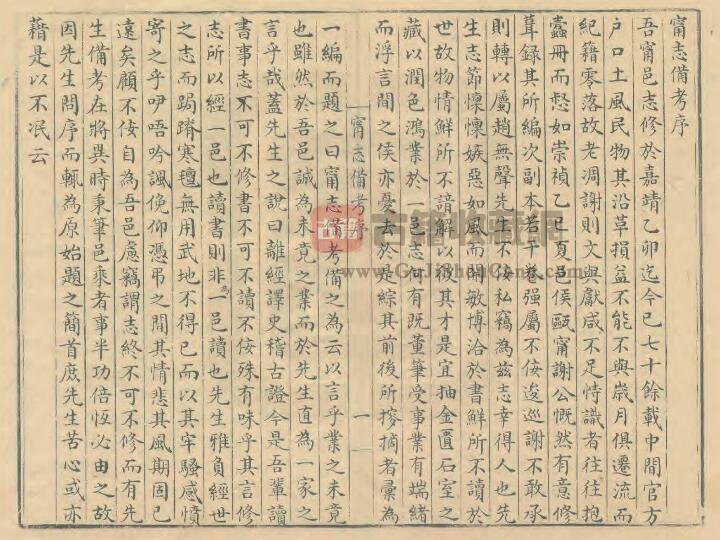 甯志備考序
吾甯邑志修於嘉靖乙卯迄今已七十餘載中間官方
户口土風民物其沿革損益不能不與歲月俱遷流而
紀籍零落故老凋謝則文與獻咸不足恃識者往往抱
蠹冊而慭如崇禎乙巳夏邑侯甌甯謝公慨然有意修
葺録其所編次副本若干卷强屬不佞逡巡謝不敢承
則轉以屬趙無聲先生不佞私竊為兹志幸得人也先
生志節懍懍嫉惡如風而閎敏博洽於書鮮所不讀於
世故物情鮮所不諳解以彼其才是宜抽金匱石室之
藏以潤色鴻業於一邑志何有既董筆受事業有端緒
而浮言間之侯亦憂去於是綜其前後所搜摘者彙為
甯志備考序
一
一編而題之曰甯志備考備之為云以言乎業之未竟
也雖然於吾邑誠為未竟之業而於先生直為一家之
言乎哉蓋先生之說曰離經譯史稽古證今是吾輩讀
書事志不可不修書不可不讀不佞殊有味乎其言修
志所以經一邑也讀書則非為一邑讀也先生雅負經世
之志而跼蹐寒氊無用武地不得已而以其牢騷感憤
寄之乎吚唔吟諷俛仰憑弔之間其情悲其風期固已
遠矣顧不佞自為吾邑慮竊謂志終不可不修而有先
生備考在將異時秉筆邑乘者事半功倍恆必由之故
因先生問序而輒為原始題之簡首庶先生苦心或亦
藉是以不泯云
古籍收藏網
www.GuJiShouCang.com